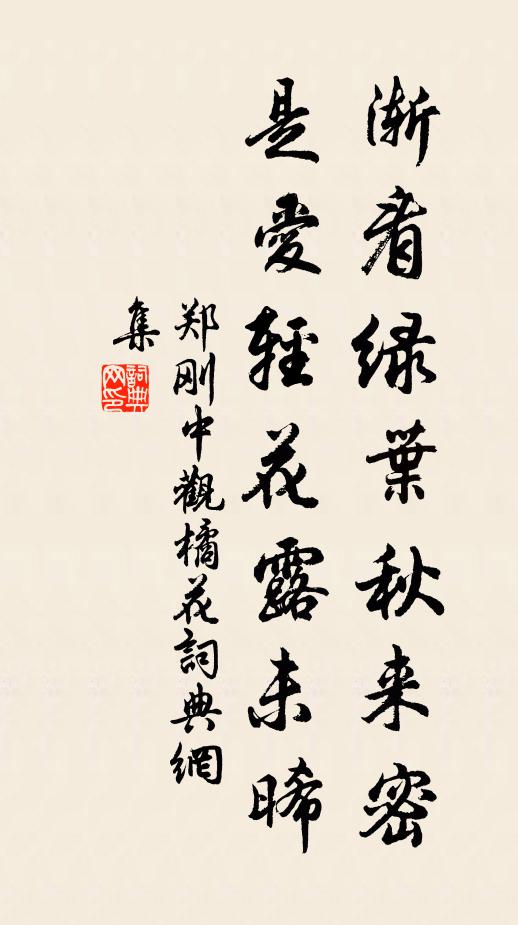 渐看绿葉秋来密
是愛輕花露未晞
郑刚中觀橘花詞典網
集
詞典网印